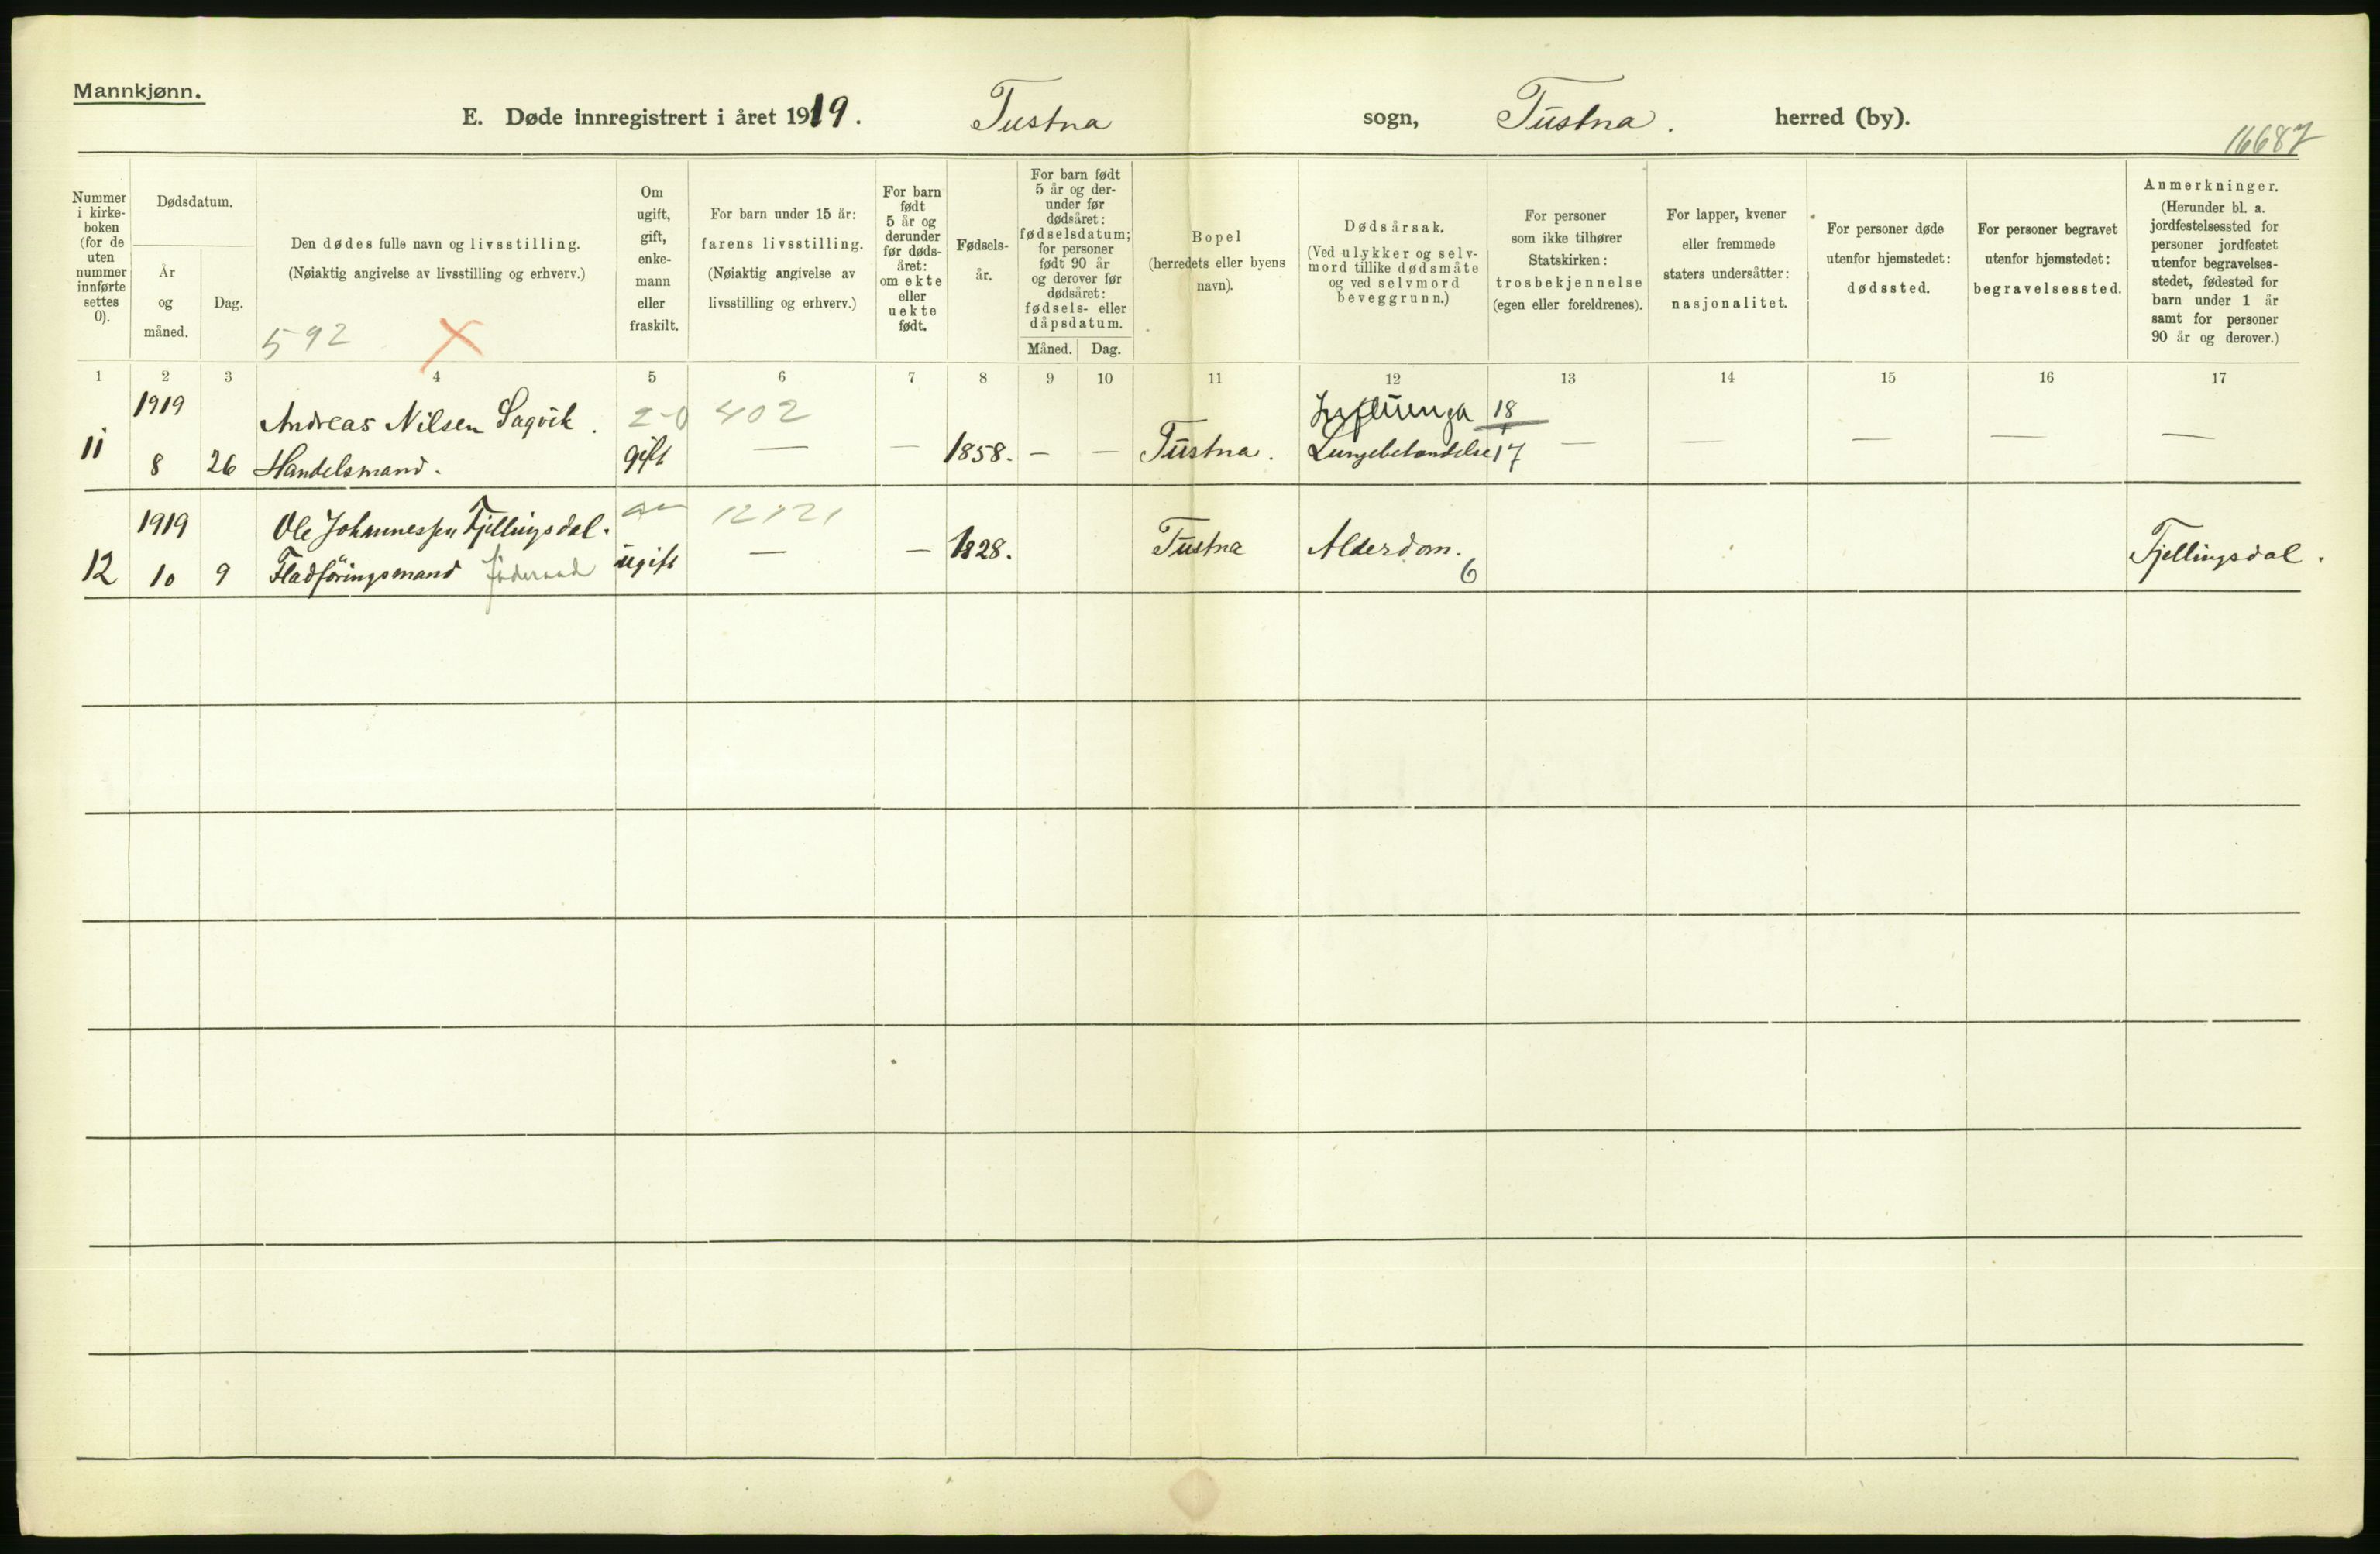 Mannkjønn.
E. Døde innregistrert i året 1919. Tustna sogn, Tustna. herred (by).
16687
Nummer i kirke-boken (for de uten nummer innførte settes 0).
Dødsdatum.
År og måned.
Dag.
Den dødes fulle navn og livsstilling.
(Nøiaktig angivelse av livsstilling og erhverv.)
592 X
Om ugift, gift, enke-mann eller fraskilt.
For barn under 15 år:
farens livsstilling.
(Nøiaktig angivelse av
livsstilling og erhverv.)
For barn født 5 år og derunder før døds-året: om ekte eller uekte født.
Fødsels-år.
For barn født 5 år og der-under før dødsåret: fødselsdatum; for personer født 90 år og derover før dødsåret: fødsels- eller dåpsdatum.
Måned. Dag.
Bopel
(herredets eller byens
navn).
Dødsårsak.
(Ved ulykker og selv-
mord tillike dødsmåte
og ved selvmord
beveggrunn.)
For personer
som ikke tilhører
Statskirken:
trosbekjennelse
(egen eller foreldrenes).
For lapper, kvener
eller fremmede
staters undersåtter:
nasjonalitet.
For personer døde
utenfor hjemstedet:
dødssted.
For personer begravet
utenfor hjemstedet:
begravelsessted.
Anmerkninger.
(Herunder bl. a.
jordfestelsessted for
personer jordfestet
utenfor begravelses-
stedet, fødested for
barn under 1 år
samt for personer
90 år og derover.)
1 2 3 4 5 6 7 8 9 10 11 12 13 14 15 16 17
1919 Andreas Nilsen Sagvik. 2-0 402 Influenza 18
11 8 26 Handelsmand. gift — — 1858. — — Tustna. Lungebetændelse 17 — — — — —
1919 Ole Johannessen Fjellingsdal. 12121
12 10 9 Fladføringsmand føderaad ugift — — 1828. Tustna Alderdom. 6 Fjellingsdal.